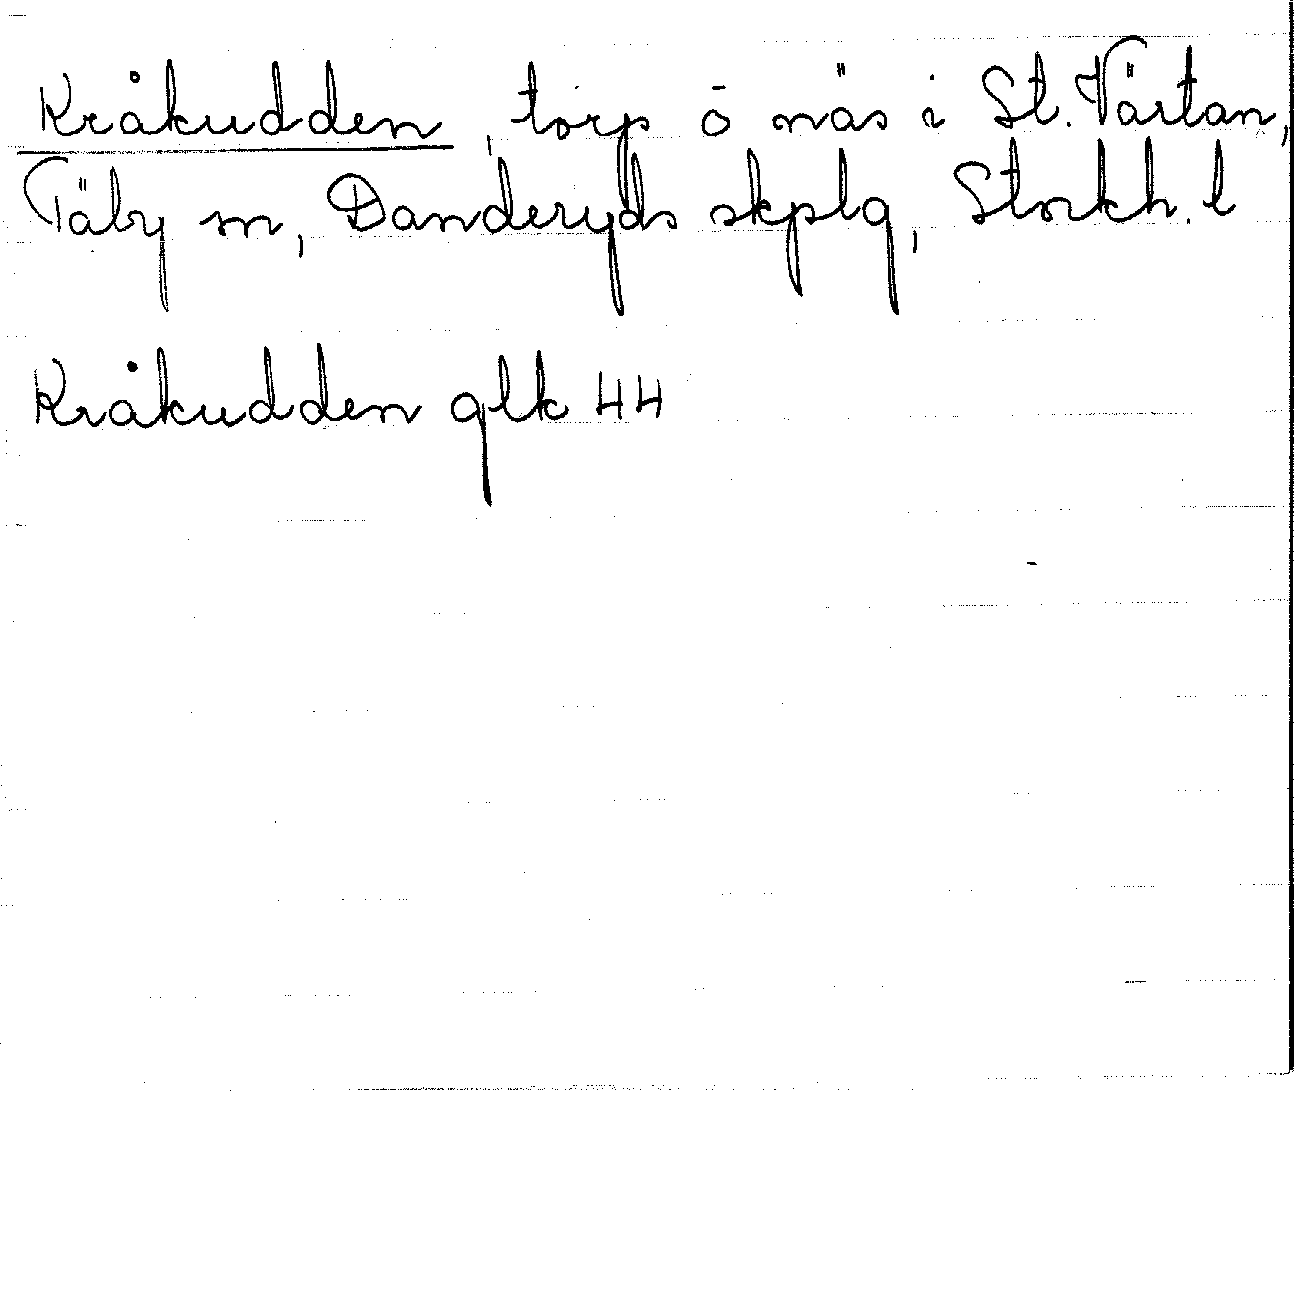 Kråkudden, torp o näs i St. Värtan,
Täby sn, Danderyds skplg, Stockh. l
Kråkudden glk 44